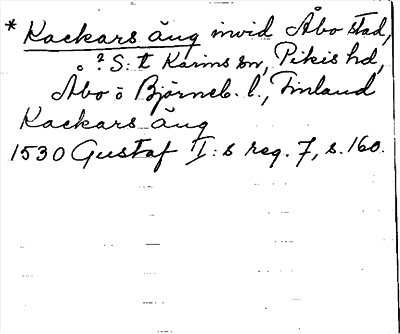 * Kackars äng invid Åbo stad,
? S:t Karins sn, Pikis hd,
Åbo o Björneb. l., Finland
Kackars äng
1530 Gustaf I:s reg. 7, s. 160.